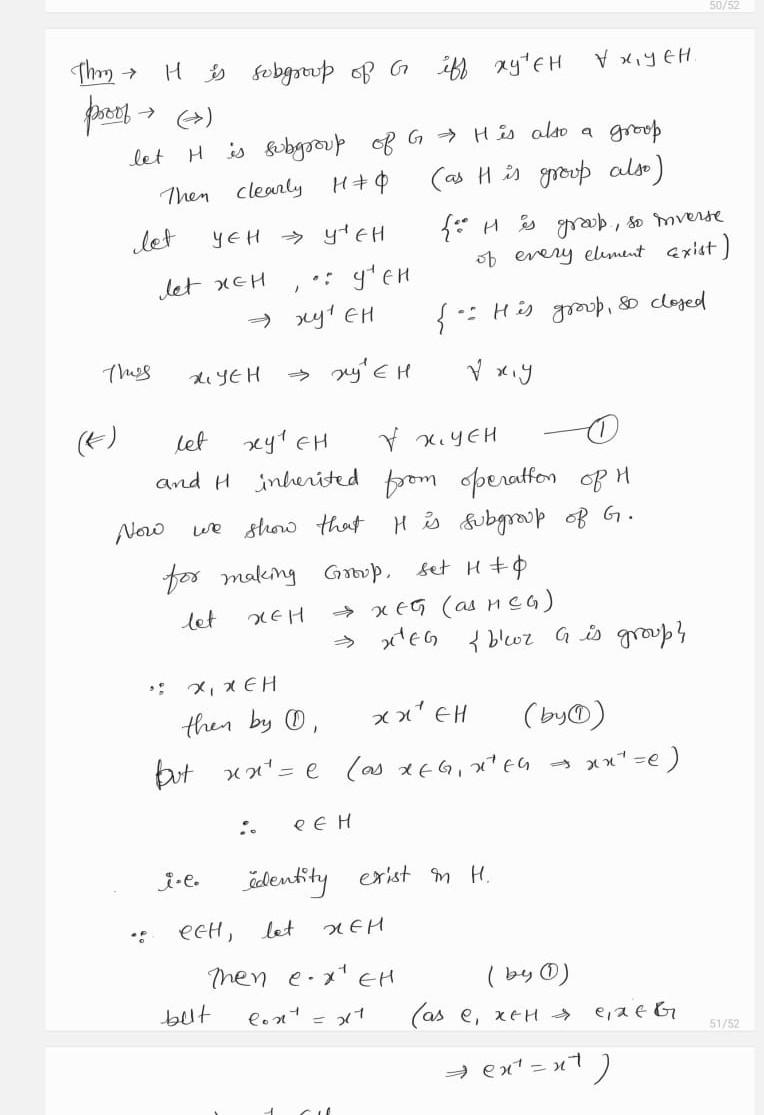 50/52
Thm → H is subgroup of G iff xy⁻¹∈H ∀ x,y∈H.
proof → (⇒)
let H is subgroup of G ⇒ H is also a group
Then clearly H≠ϕ (as H is group also)
let y∈H ⇒ y⁻¹∈H {∵ H is group, so inverse
of every element exist}
let x∈H , ∵ y⁻¹∈H
⇒ xy⁻¹∈H { ∵ H is group, so closed
Thus x,y∈H ⇒ xy⁻¹∈H ∀ x,y
(⇐) let xy⁻¹∈H ∀ x,y∈H — ①
and H inherited from operation of H
Now we show that H is subgroup of G.
for making Group, set H≠ϕ
let x∈H ⇒ x∈G (as H⊆G)
⇒ x⁻¹∈G { b'coz G is group}
∵ x, x∈H
then by ①, xx⁻¹∈H (by①)
but xx⁻¹ = e (as x∈G, x⁻¹∈G ⇒ xx⁻¹=e)
∴ e∈H
i.e. identity exist in H.
∵ e∈H, let x∈H
Then e·x⁻¹∈H (by①)
but e·x⁻¹ = x⁻¹ (as e, x∈H ⇒ e,x∈G
51/52
⇒ ex⁻¹=x⁻¹)